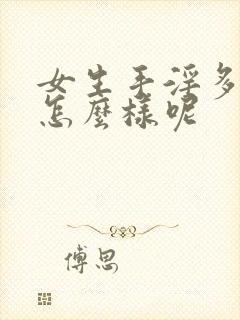 女生手淫多
怎麼樣呢
傅思